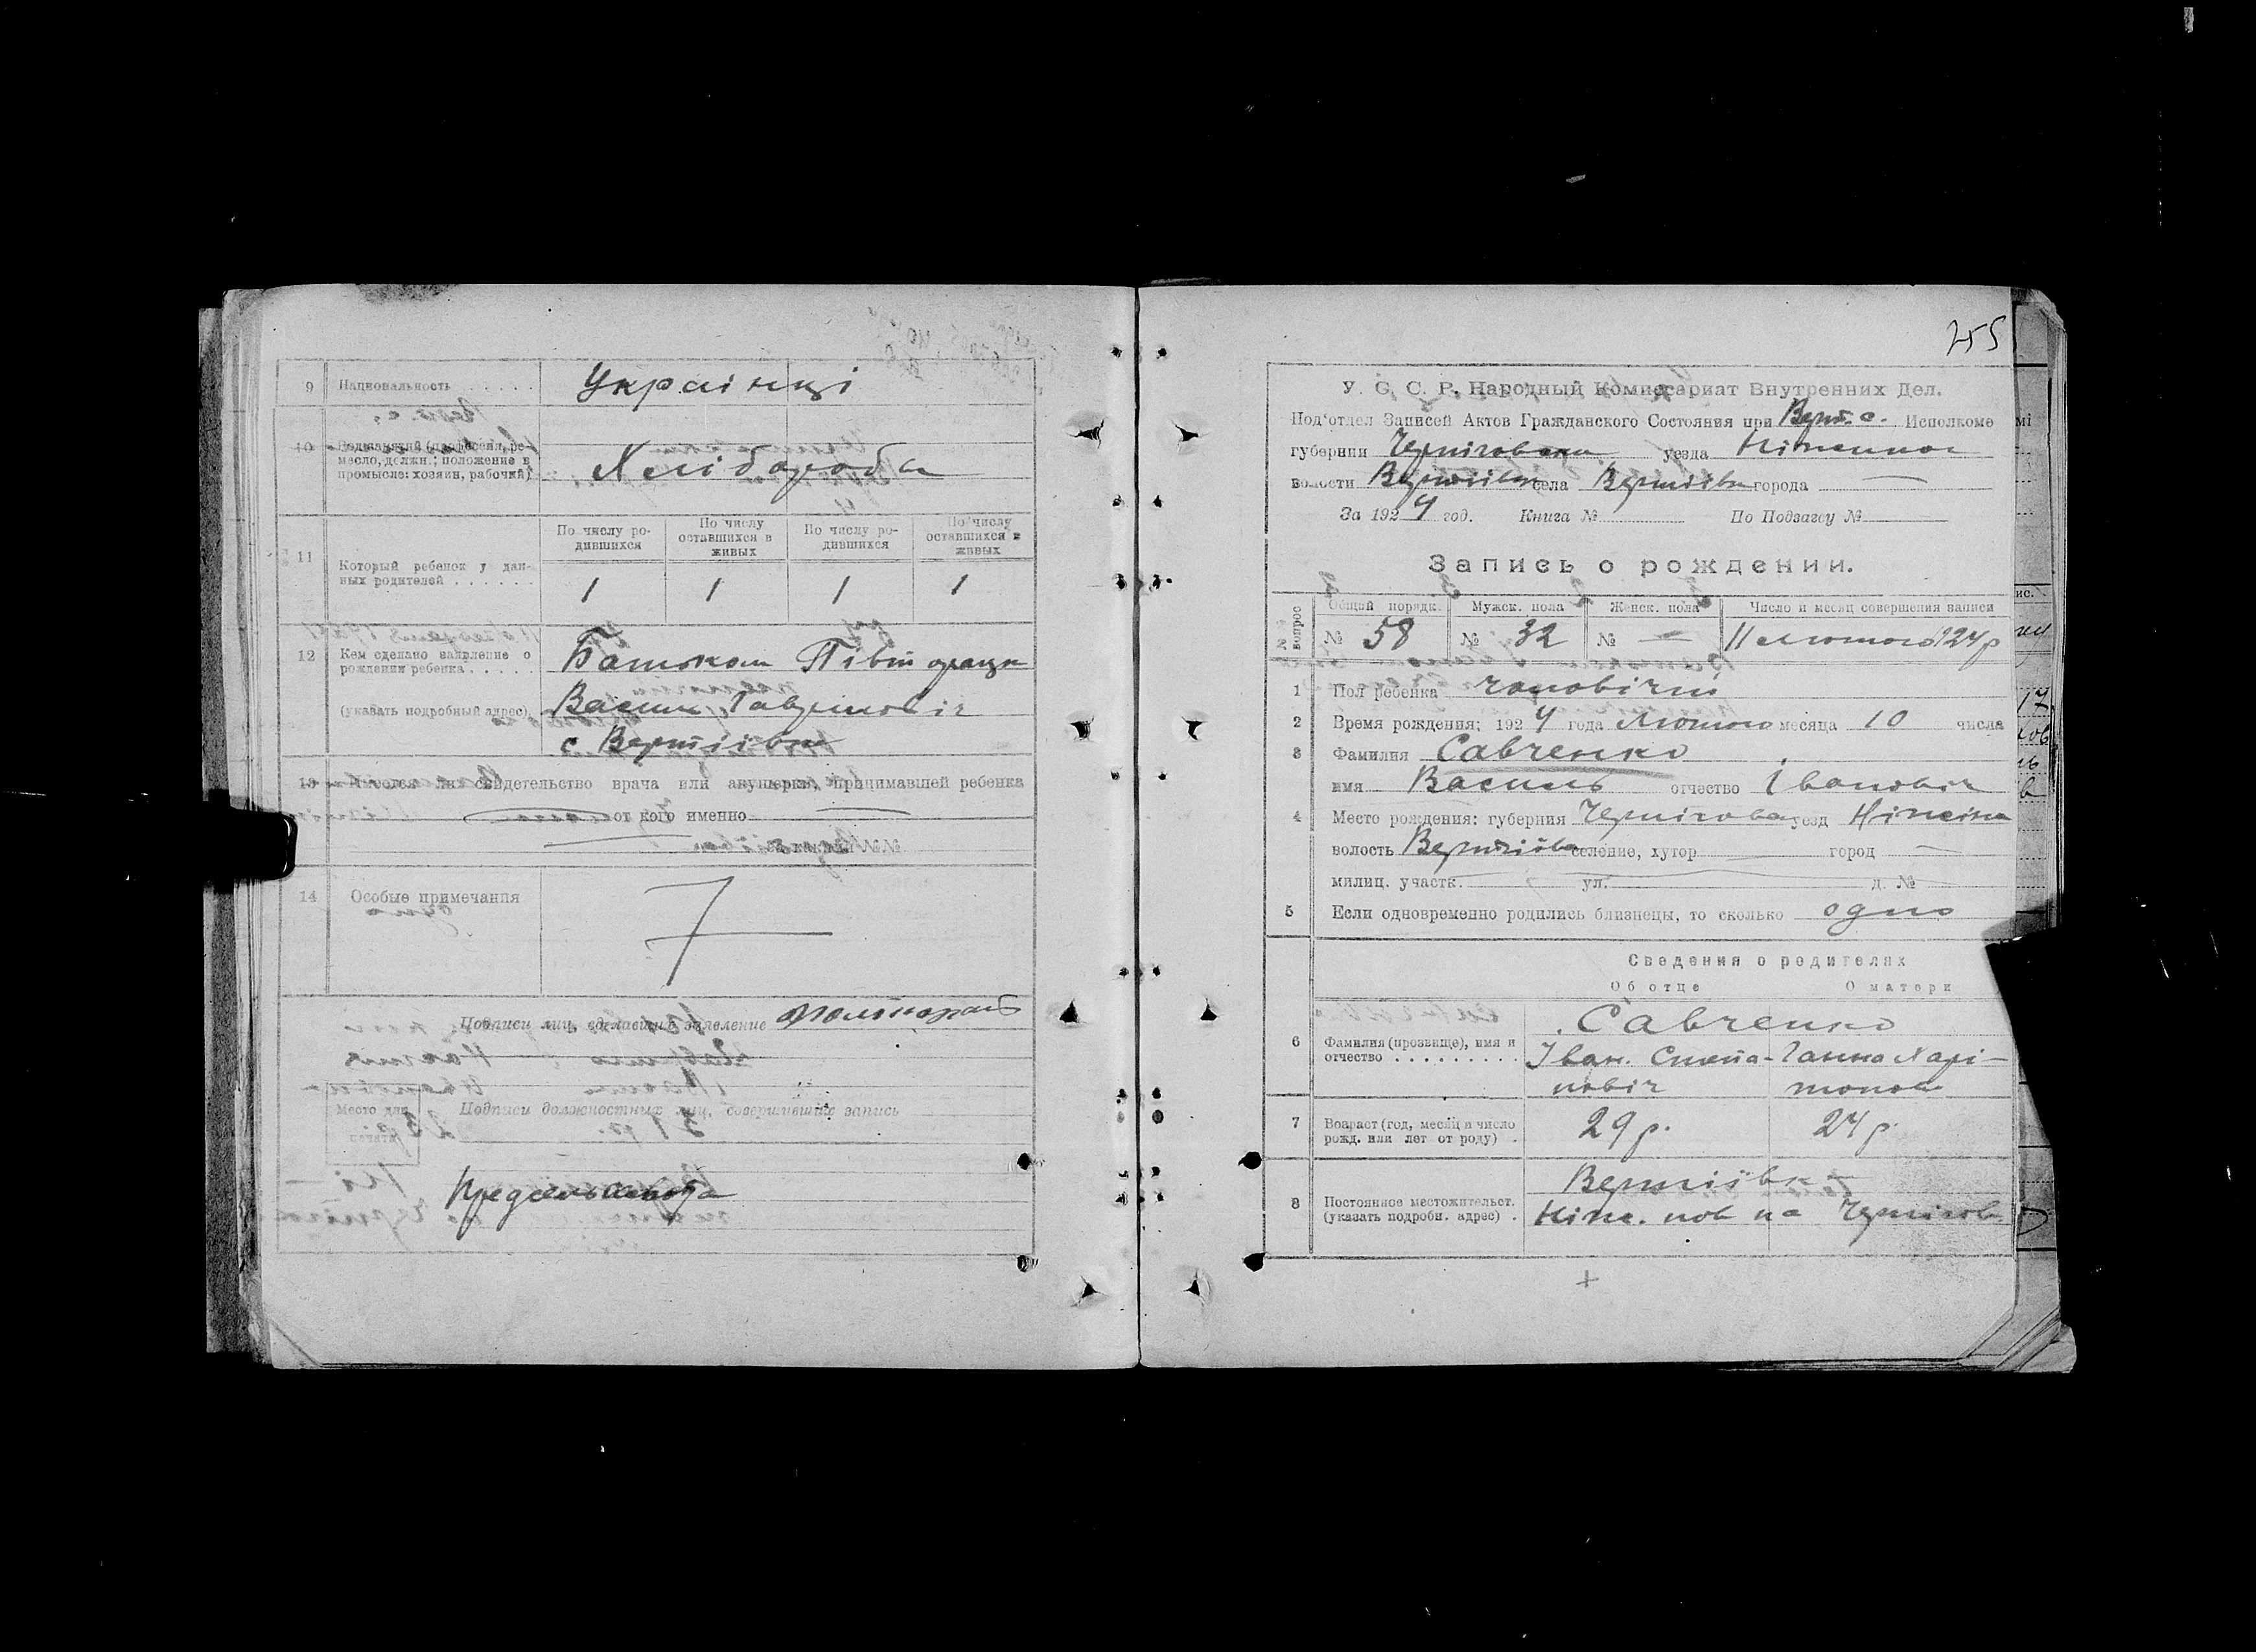 9 Национальность Українці
10 Род занятий (профессия, ре-
месло, должн.; положение в
промысле: хозяин, рабочий) Хлібороби
По числу ро-
дившихся
По числу
оставшихся в
живых
По числу ро-
дившихся
По числу
оставшихся в
живых
11 Который ребенок у дан-
ных родителей
1 1 1 1
12 Кем сделано заявление о
рождении ребенка Батьком Півторацк
(указать подробный адрес) Васил Гаврилович
с Вертіївки
13 Имеется ли свидетельство врача или акушерки, принимавшей ребенка
от кого именно
за №№
14 Особые примечания
Подписи лиц, сделавших заявление
Подписи должностных лиц, совершивших запись
Место для
печати
255
У. С. С. Р. Народный Комиссариат Внутренних Дел.
Под'отдел Записей Актов Гражданского Состояния при Верт. с. Исполкоме
губернии уезда
волости Вертіївка села Вертіївка города —
За 1924 год. Книга № По Подзагсу №
Запись о рождении.
№ вопрос Общий порядк. Мужск. пола Женск. пола Число и месяц совершения записи
№ 58 № 32 № — 11 лютого 1924 р
1 Пол ребенка чоловічий
2 Время рождения: 1924 года Лютого месяца 10 числа
3 Фамилия Савченко
имя Василь отчество Івановіч
4 Место рождения: губерния Чернігова уезд Ніжеіна
волость Вертіївка селение, хутор город —
милиц. участк. ул. д. №
5 Если одновременно родились близнецы, то сколько одно
Сведения о родителях
Об отце О матери
6 Фамилия (прозвище), имя и
отчество
Савченко
Іван. Степа- Ганна Харі-
новіч тонов
7 Возраст (год, месяц и число
рожд. или лет от роду) 29 р. 24 р.
8 Постоянное местожительст.
(указать подробн. адрес)
Вертіївка
Ніж. пов на Чернігов
+